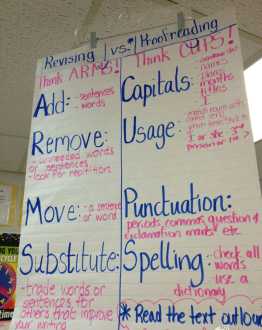 Revising vs. Proofreading
Think ARMS! Think CUPS!
Add: - sentences
- words
Remove:
- unneeded words
or sentences
- look for repitition
Move: - a sentence
or word
Substitute:
- trade words or
sentences for
others that improve
your writing
Capitals:
names
places
months
titles
I
Usage:
Punctuation:
periods, commas, question &
exclamation marks etc.
Spelling: - check all
words
use a
dictionary
* Read the text out loud